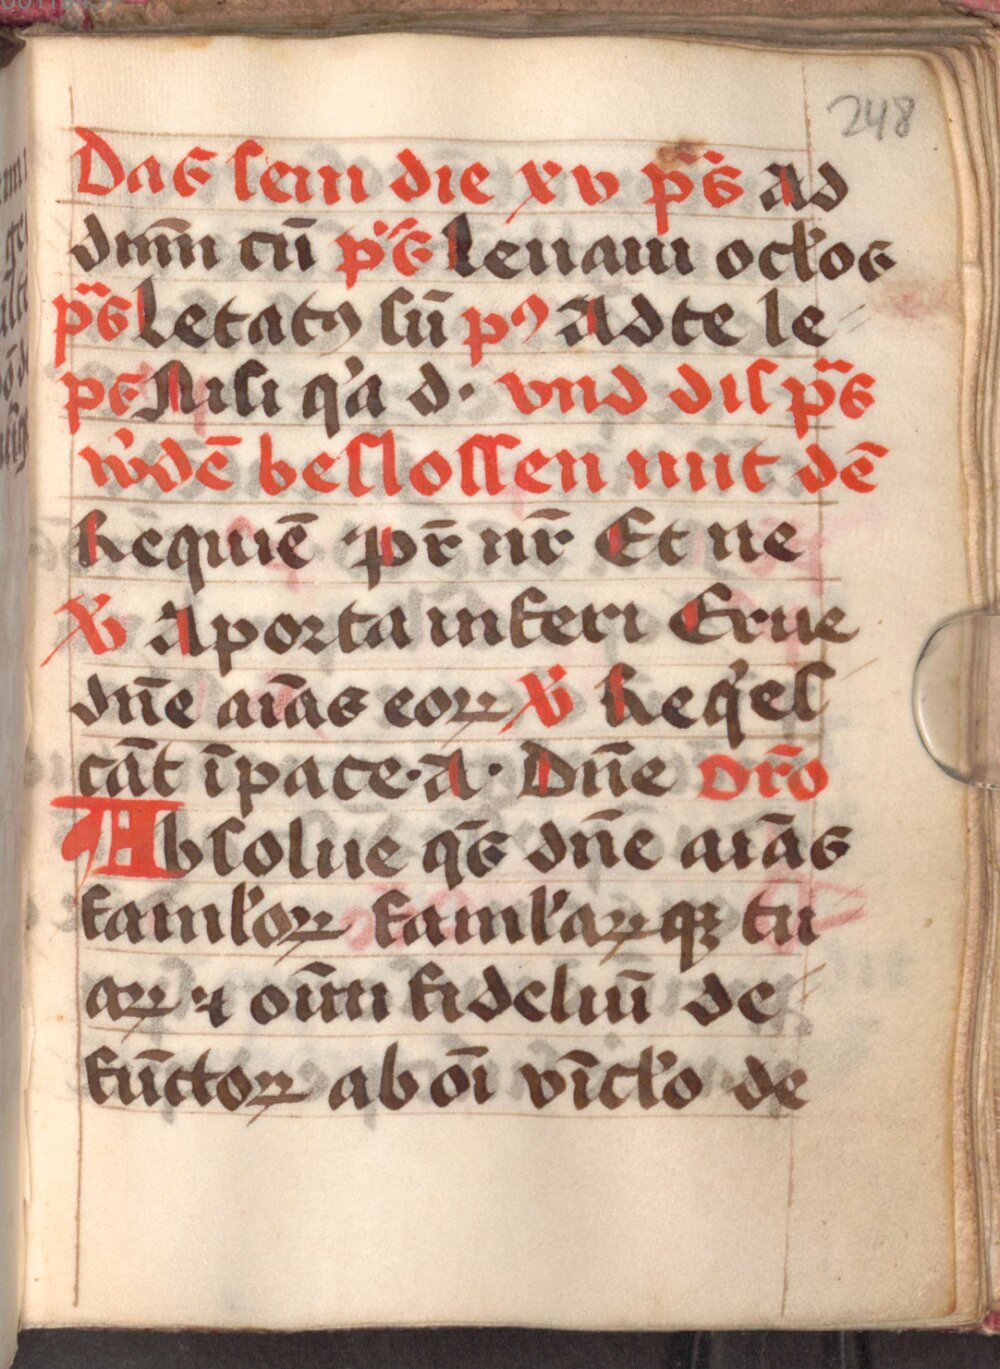 248
Das sein die xv p̄s Ad
dn̄m cū p̄s Leuaui oc̄los
p̄s Letatꝰ sū pꝰ Ad te le
ps Nisi q̇a d· vnd dis p̄s
w̓dē beslossen mit dē
Requiē pr̄ nr̄ Et ne
℣ A porta inferi Erue
dn̄e aīas eoꝝ ℣ Req̓es
cāt ī pace · A · Dn̄e Or̄o
Absolue q̄s dn̄e aīas
faml̓oꝝ faml̓aꝝqꝫ tu
aꝝ ⁊ oīm fideliū de
fūctoꝝ ab oī vīcl̓o de